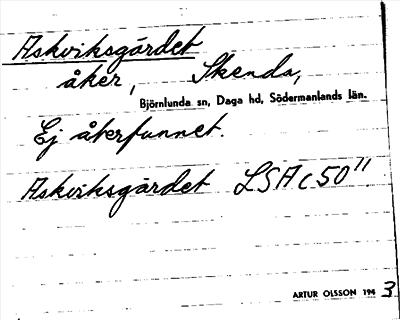 Askviksgärdet
åker, Skenda,
Björnlunda sn, Daga hd, Södermanlands län.
Ej återfunnet.
Askviksgärdet LSA C50"
ARTUR OLSSON 1943